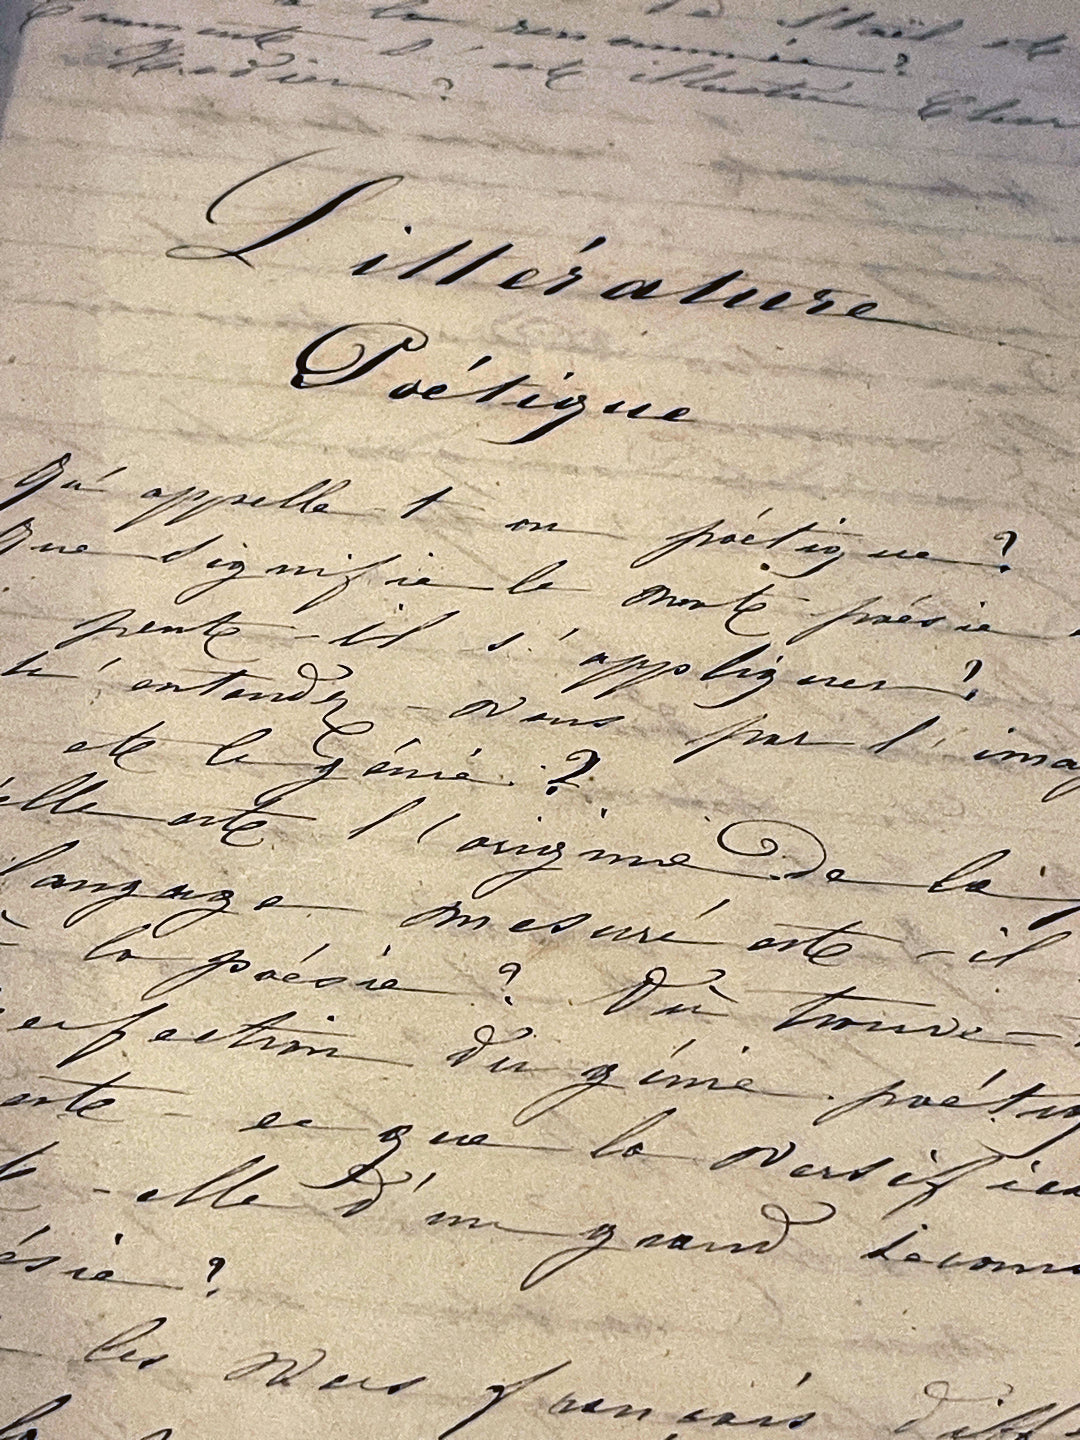 la renommée? de Staël et
Comment s'est illustré Char
Nodier?
Littérature
Poétique
Qu'appelle t on poétique?
Que signifie le mot poésie
peut-il s'appliquer?
entendez-vous par l'imag
et le génie?
elle est l'origine de la
langage mesuré est-il
à la poésie? Où trouve-
erfection du génie poétiq
est-ce que la versifica
-elle d'un grand secours
ésie?
les vers français diff